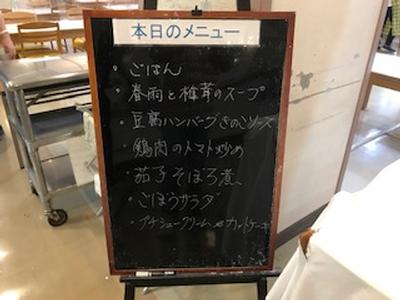 本日のメニュー
・ごはん
・春雨と椎茸のスープ
・豆腐ハンバーグきのこソース
・鶏肉のトマト炒め
・茄子そぼろ煮
・ごぼうサラダ
・プチシュークリーム or カットケーキ